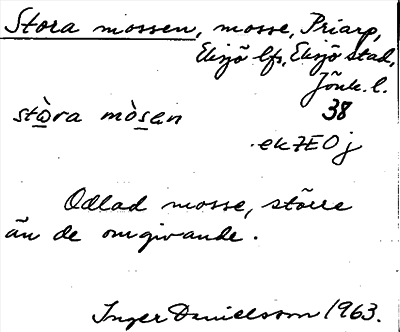 Stora mossen, mosse, Priarp,
Eksjö lfs, Eksjö stad,
Jönk. l.
stòra mòsan 38
ek7E0j
Odlad mosse, större
än de omgivande.
Inger Danielsson 1963.